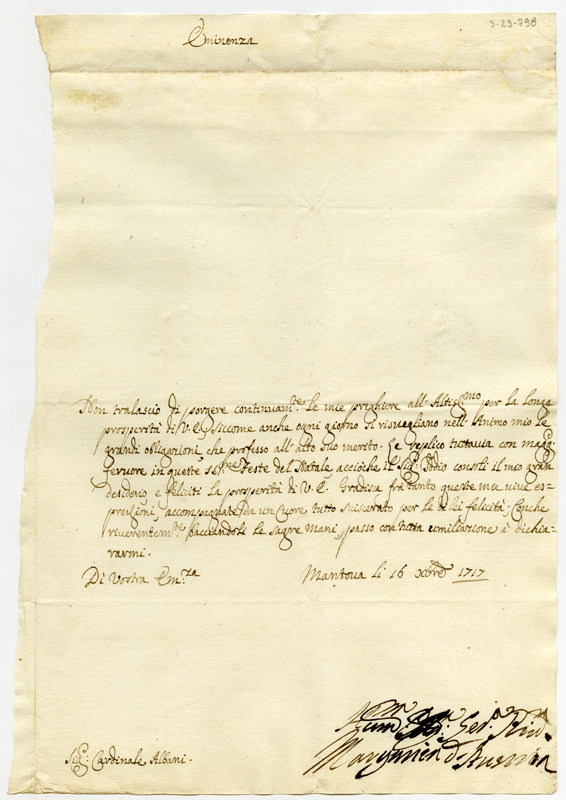 3-23-798
Eminenza
Non tralascio di porgere continuam.te le mie preghiere all'Altis.mo per la longa
prosperità di V.E., siccome anche ogni giorno si risvegliano nell'Animo mio le
grandi obligazioni, che professo all'alto suo merito. Le replico tuttavia con magg.r
fervore in queste s.me Feste del Natale acciòche il Sig.r Iddio consoli il mio gran
desiderio, e feliciti la prosperità di V.E. Gradisca frà tanto queste mie vive es-
pressioni, accompagnate da un Cuore tutto sviscerato per le di lei felicità; Con che
riverentem.te bacciandole le sagre mani, passo con tutta umiliazione à dichia-
rarmi.
Di Vostra Em.za
Mantova li 16 Xbre 1717
Sig.r Cardinale Albani.